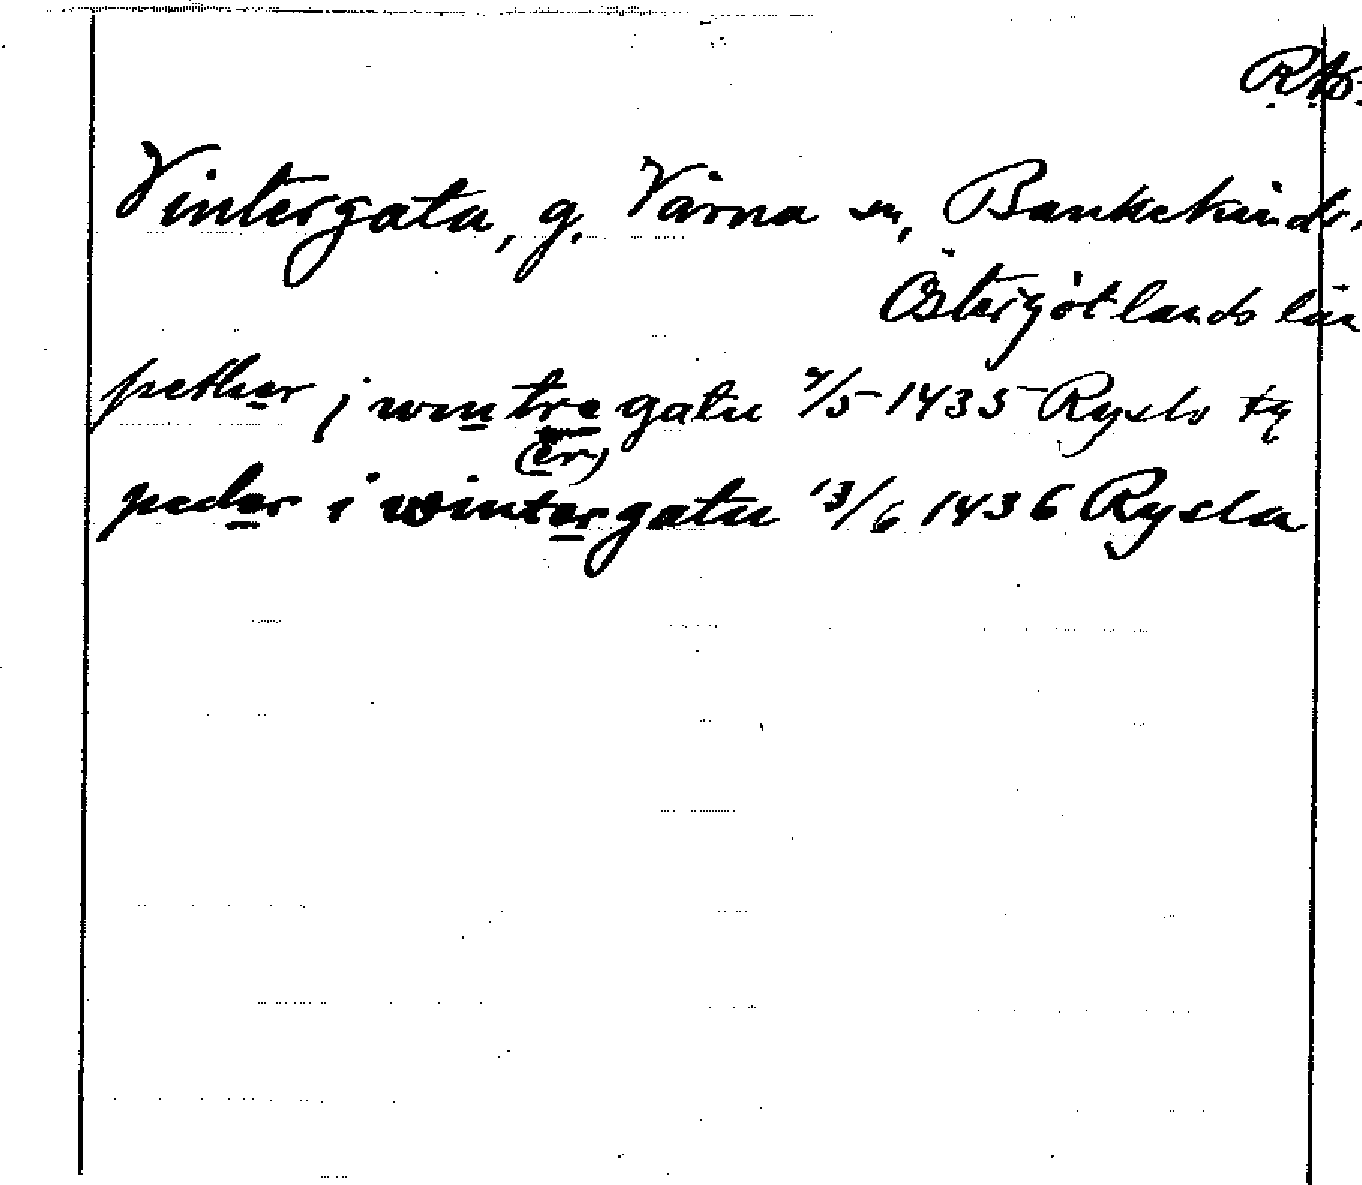 RA.
Vintergata, g. Vårna sn, Bankekinds
Östergötlands län
pether j wintregatu 7/5 1435 Rysls
(er)
peder i wintergatu 13/6 1436 Rysla